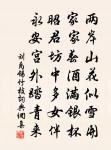 两岸山花似雪开
家家春酒满银杯
昭君坊中多女伴
永安宫外踏青来
刘禹锡竹枝词